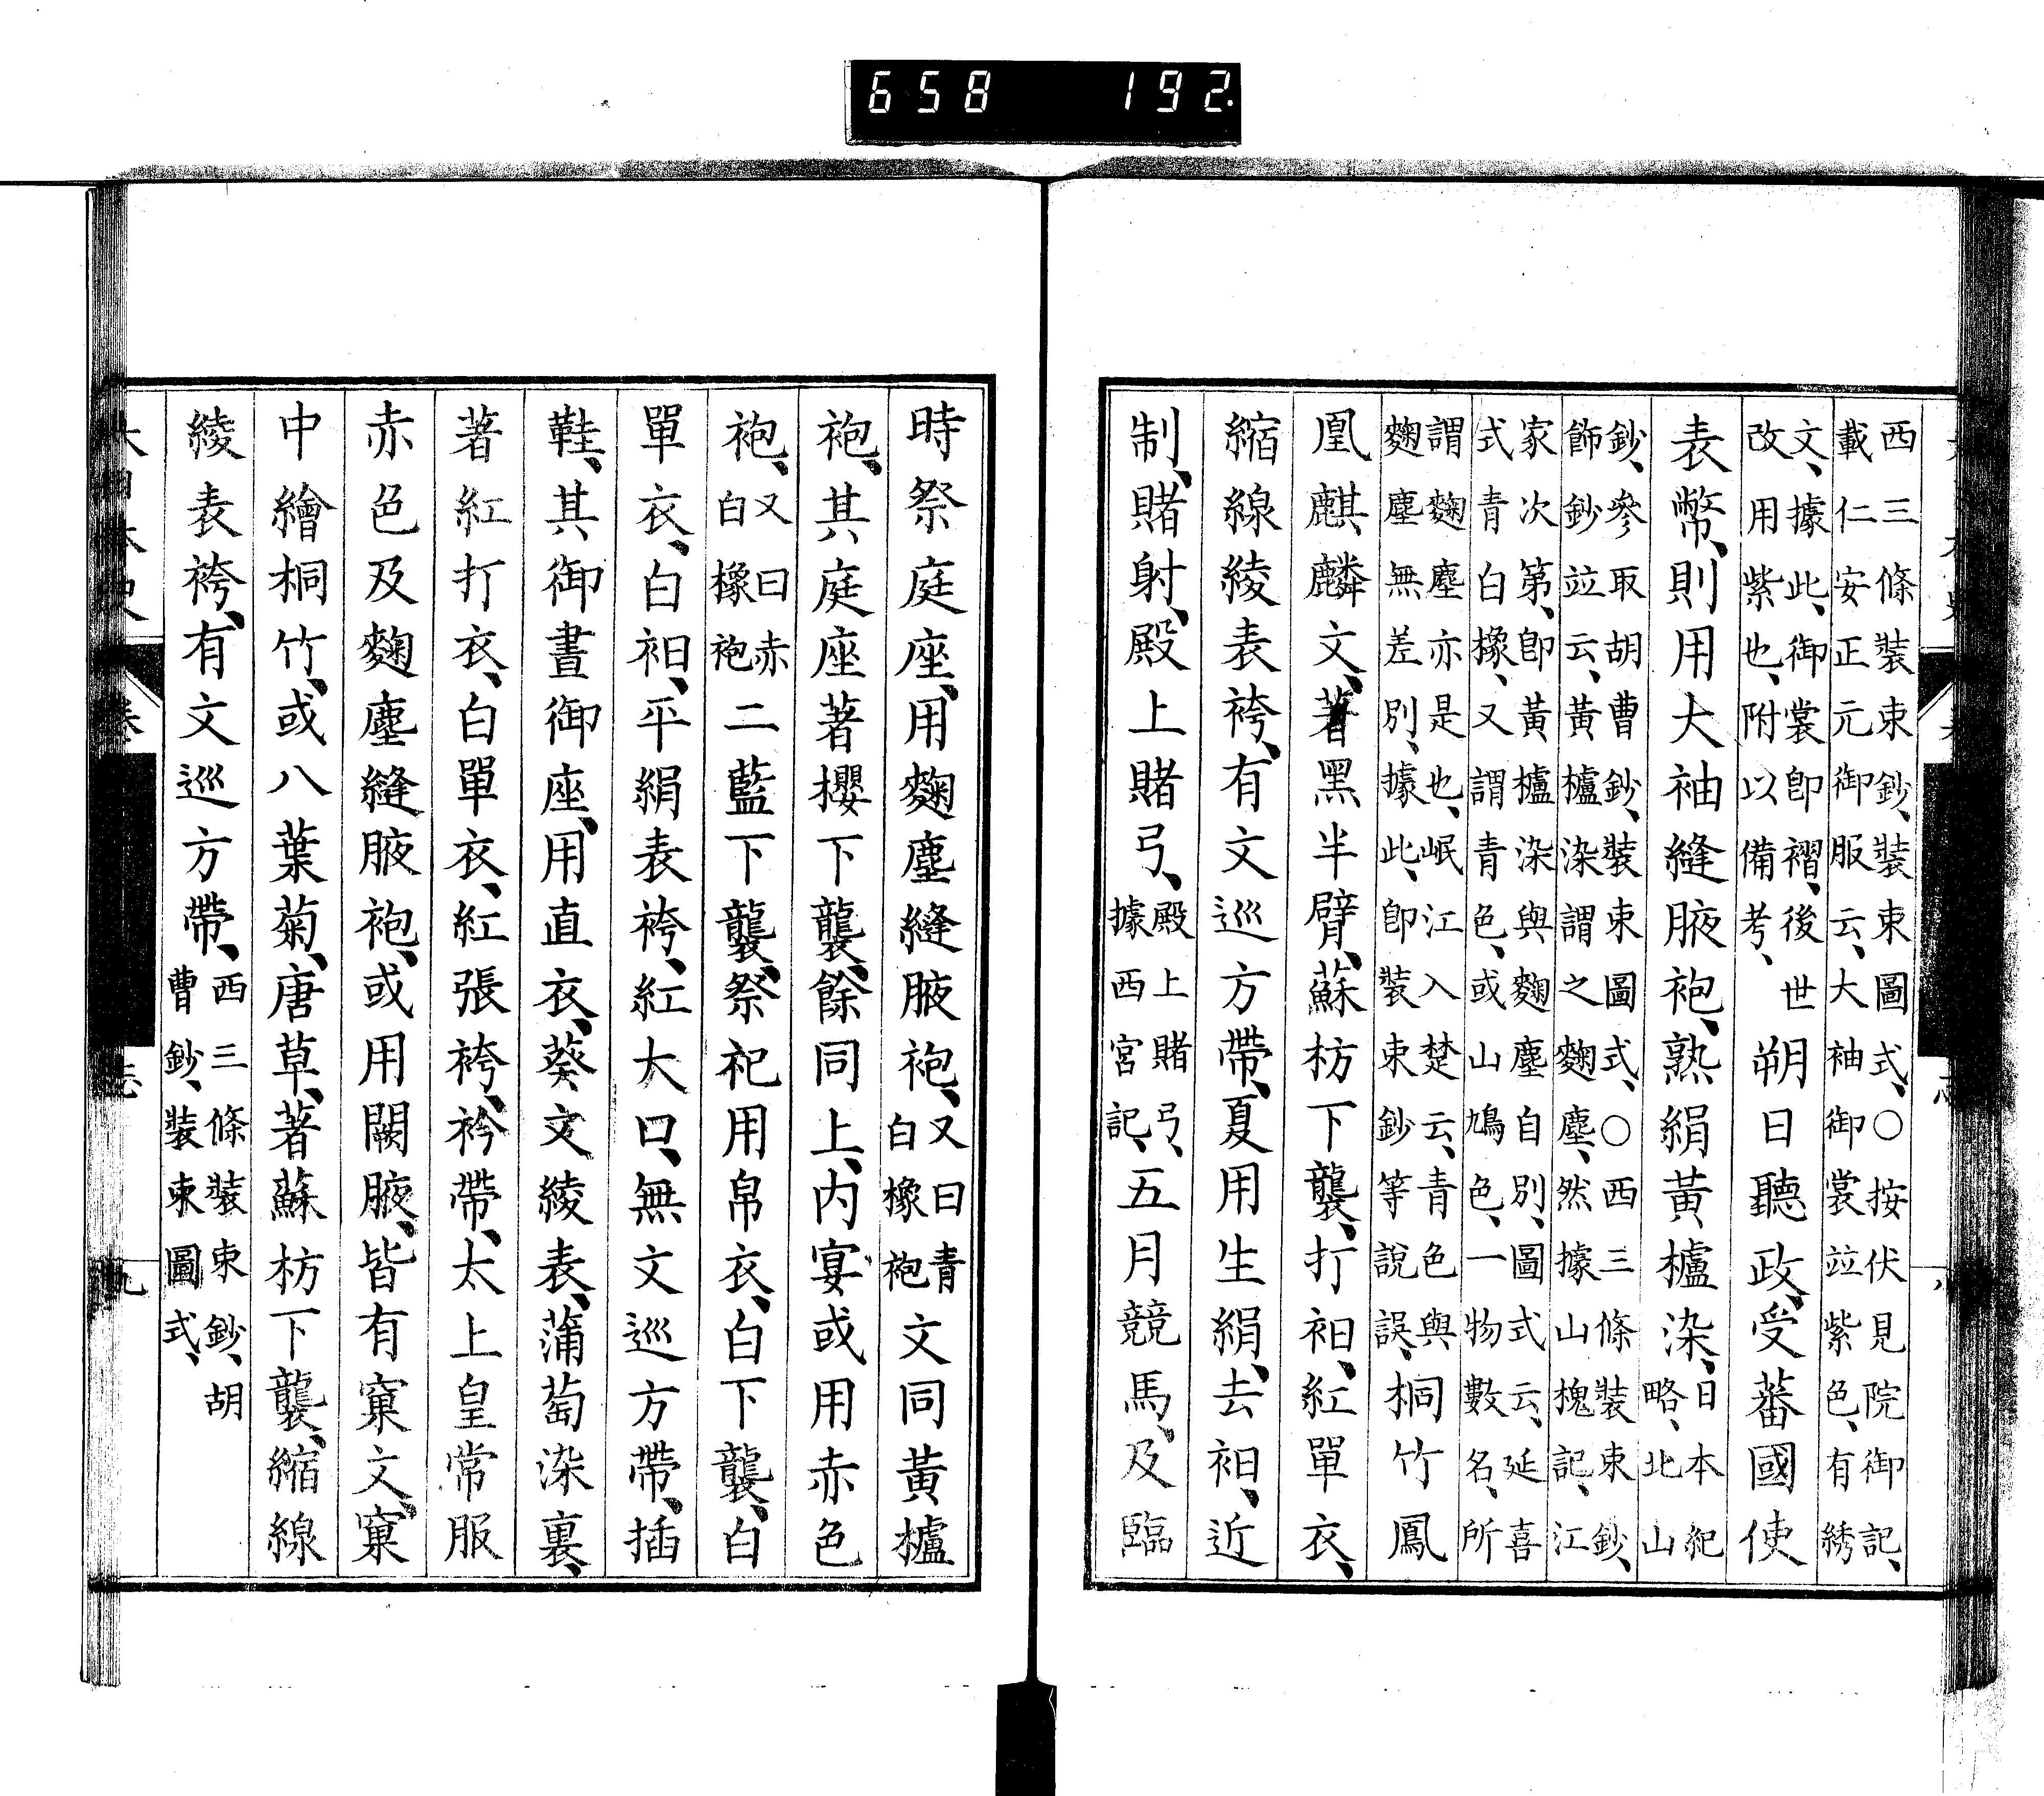 658 192.
西三條裝束鈔、裝束圖式、○按伏見院御記、
載仁安正元御服云、大袖御裳竝紫色、有綉
文、據此、御裳卽褶、後世
改用紫也、附以備考、
朔日聽政、受蕃國使
表幣、則用大袖縫腋袍、熟絹黃櫨染、
日本紀
略、北山
鈔、參取胡曹鈔、裝束圖式、○西三條裝束鈔、
飾鈔竝云、黃櫨染謂之麴塵、然據山槐記、江
家次第、卽黃櫨染與麴塵自別、圖式云、延喜
式靑白橡、又謂靑色、或山鳩色、一物數名、所
謂麴塵亦是也、岷江入楚云、靑色與
麴塵無差別、據此、卽裝束鈔等說誤、
桐竹鳳
凰麒麟文、著黑半臂、蘇枋下襲、打衵、紅單衣、
縮線綾表袴、有文巡方帶、夏用生絹、去衵、近
制、賭射、殿上賭弓、
殿上賭弓、
據西宮記、
五月競馬、及臨
時祭庭座、用麴塵縫腋袍、
又曰靑
白橡袍
文同黃櫨
袍、其庭座著櫻下襲、餘同上、內宴或用赤色
袍、
又曰赤
白橡袍
二藍下襲、祭祀用帛衣、白下襲、白
單衣、白衵、平絹表袴、紅大口、無文巡方帶、插
鞋、其御晝御座、用直衣、葵文綾表、蒲萄染裏、
著紅打衣、白單衣、紅張袴、衿帶、太上皇常服
赤色及麴塵縫腋袍、或用闕腋、皆有窠文、窠
中繪桐竹、或八葉菊、唐草、著蘇枋下襲、縮線
綾表袴、有文巡方帶、
西三條裝束鈔、胡
曹鈔、裝束圖式、